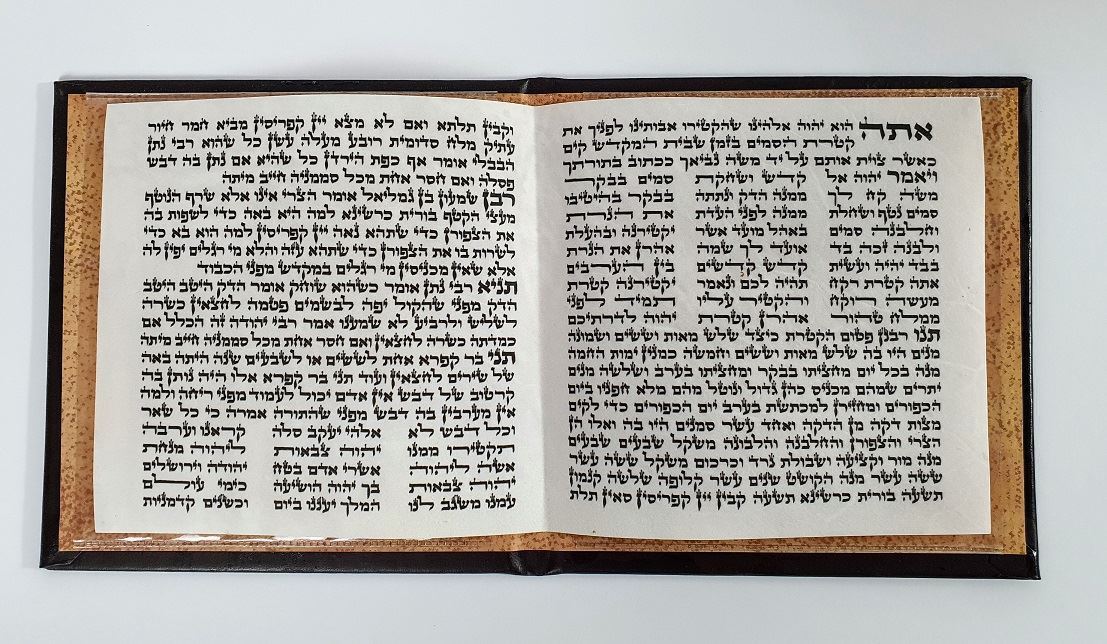 אתה הוא יהוה אלהינו שהקטירו אבותינו לפניך את
קטרת הסמים בזמן שבית המקדש קים
כאשר צוית אותם על יד משה נביאך ככתוב בתורתך
ויאמר יהוה אל
משה קח לך
סמים נטף ושחלת
וחלבנה סמים
ולבנה זכה בד
בבד יהיה ועשית
אתה קטרת רקח
מעשה רוקח
ממלח טהור
קדש ושחקת
ממנה הדק ונתתה
ממנה לפני העדת
באהל מועד אשר
אועד לך שמה
קדש קדשים
תהיה לכם ונאמר
והקטיר עליו
אהרן קטרת
סמים בבקר
בבקר בהיטיבו
את הנרת
יקטירנה ובהעלת
אהרן את הנרת
בין הערבים
יקטירנה קטרת
תמיד לפני
יהוה לדרתיכם
תנו רבנן פטום הקטרת כיצד שלש מאות וששים ושמונה
מנים היו בה שלש מאות וששים וחמשה כמנין ימות החמה
מנה בכל יום מחציתו בבקר ומחציתו בערב ושלשה מנים
יתרים שמהם מכניס כהן גדול ונוטל מהם מלא חפניו ביום
הכפורים ומחזירן למכתשת בערב יום הכפורים כדי לקים
מצות דקה מן הדקה ואחד עשר סמנים היו בה ואלו הן
הצרי והצפורן והחלבנה והלבונה משקל שבעים שבעים
מנה מור וקציעה ושבולת נרד וכרכום משקל ששה עשר
ששה עשר מנה הקושט שנים עשר קלופה שלשה קנמון
תשעה בורית כרשינא תשעה קבין יין קפריסין סאין תלת
וקבין תלתא ואם לא מצא יין קפריסין מביא חמר חיור
עתיק מלח סדומית רובע מעלה עשן כל שהוא רבי נתן
הבבלי אומר אף כפת הירדן כל שהיא אם נתן בה דבש
פסלה ואם חסר אחת מכל סממניה חייב מיתה
רבן שמעון בן גמליאל אומר הצרי אינו אלא שרף הנוטף
מעצי הקטף בורית כרשינא למה היא באה כדי לשפות בה
את הצפורן כדי שתהא נאה יין קפריסין למה הוא בא כדי
לשרות בו את הצפורן כדי שתהא עזה והלא מי רגלים יפין לה
אלא שאין מכניסין מי רגלים במקדש מפני הכבוד
תניא רבי נתן אומר כשהוא שוחק אומר הדק היטב היטב
הדק מפני שהקול יפה לבשמים פטמה לחצאין כשרה
לשליש ולרביע לא שמענו אמר רבי יהודה זה הכלל אם
כמדתה כשרה לחצאין ואם חסר אחת מכל סממניה חייב מיתה
תני בר קפרא אחת לששים או לשבעים שנה היתה באה
של שירים לחצאין ועוד תני בר קפרא אלו היה נותן בה
קרטוב של דבש אין אדם יכול לעמוד מפני ריחה ולמה
אין מערבין בה דבש מפני שהתורה אמרה כי כל שאר
וכל דבש לא
תקטירו ממנו
אשה ליהוה
יהוה צבאות
עמנו משגב לנו
אלהי יעקב סלה
יהוה צבאות
אשרי אדם בטח
בך יהוה הושיעה
המלך יעננו ביום
קראנו וערבה
ליהוה מנחת
יהודה וירושלים
כימי עולם
וכשנים קדמניות